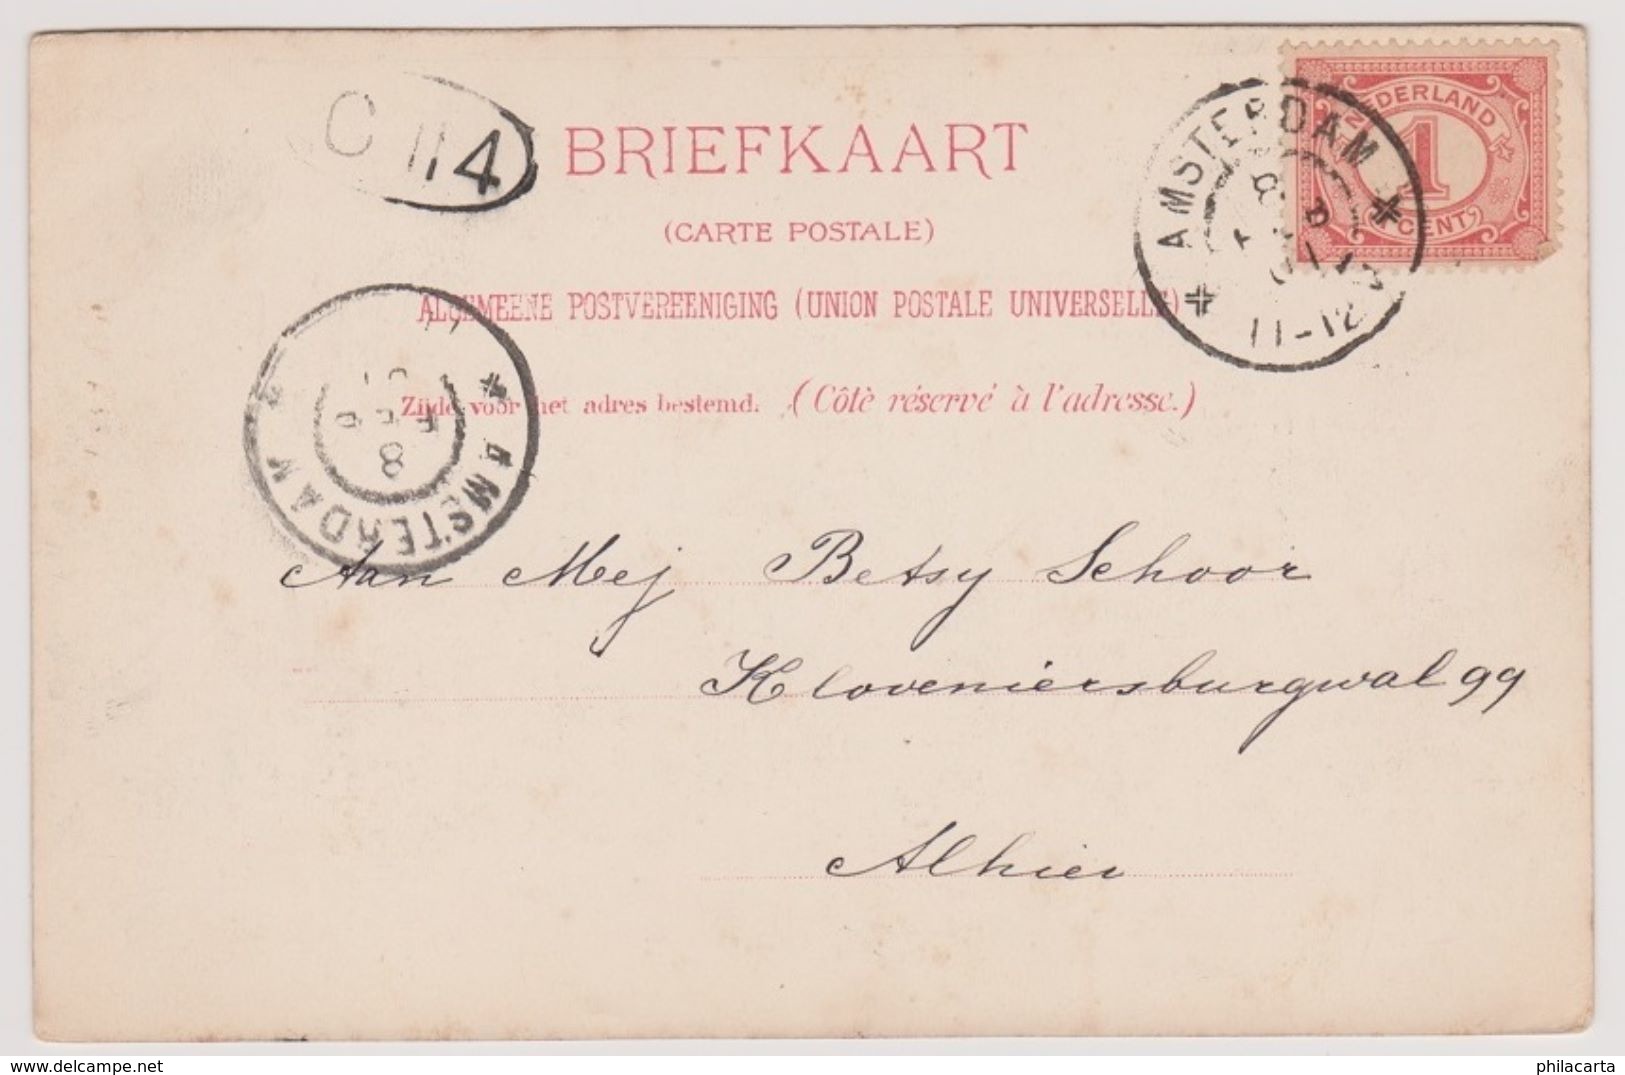 C 114
BRIEFKAART
(CARTE POSTALE)
ALGEMEENE POSTVEREENIGING (UNION POSTALE UNIVERSELLE)
Zijde voor het adres bestemd. (Côté réservé à l'adresse.)
NEDERLAND
1
CENT
AMSTERDAM
11-12
AMSTERDAM
8
Aan Mej Betsy Schoor
Kloveniersburgwal 99
Alhier
philacarta